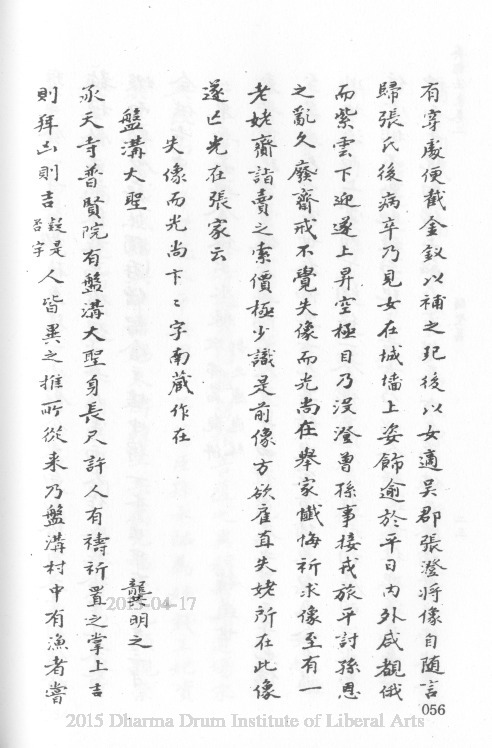 有穿處便截金釵以補之記後以女適吳郡張澄將像自隨言
歸張氏後病卒乃見女在城墻上姿飾逾於平日內外咸覩俄
而紫雲下迎遂上昇空極目乃沒澄曾孫事接戎旅平討孫恩
之亂久廢齋戒不覺失像而光尚在舉家懺悔祈求像至有一
老姥齎詣賣之索價極少識是前像方欲雇直失姥所在此像
遂亡光在張家云
失像而光尚下〻字南藏作在
盤溝大聖
龔明之
承天寺普賢院有盤溝大聖身長尺許人有禱祈置之掌上吉
則拜凶則吉疑是否字人皆異之推所從来乃盤溝村中有漁者嘗
056
2013-04-17
2015 Dharma Drum Institute of Liberal Arts